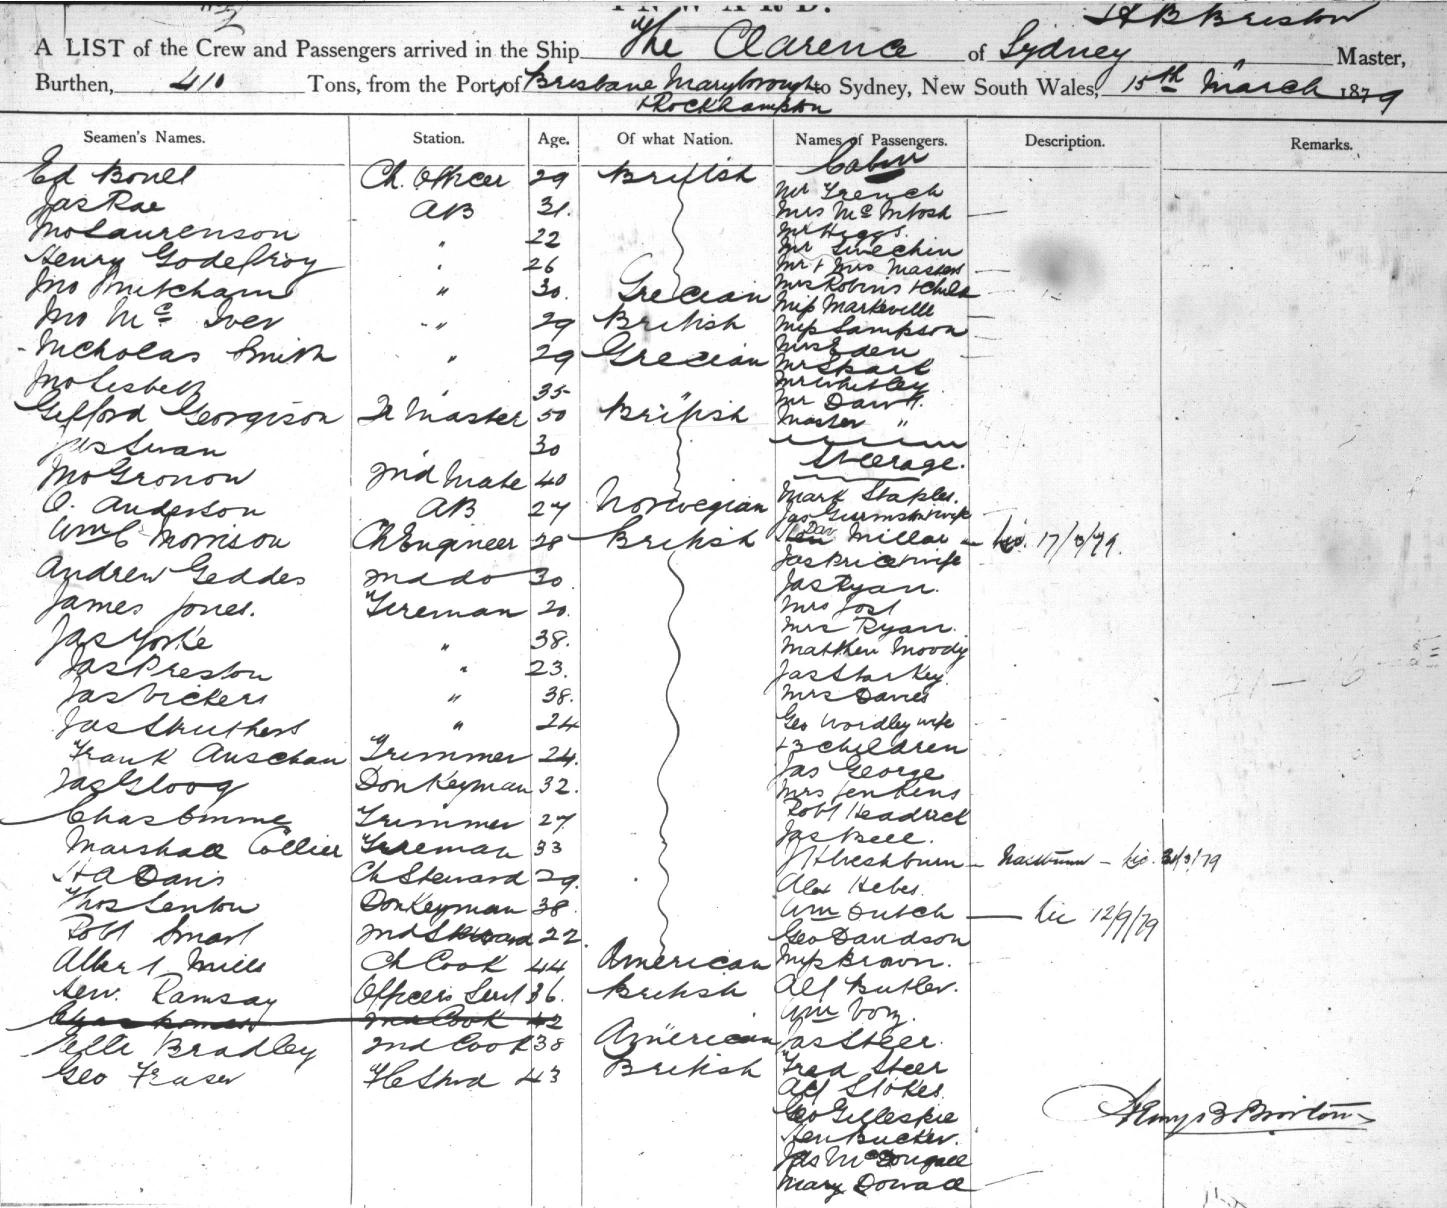 INWARD.
H B Briston
A LIST of the Crew and Passengers arrived in the Ship The Clarence of Sydney Master,
Burthen, 410 Tons, from the Port of Brisbane Maryborough to Sydney, New South Wales, 15th March 1879
+ Rockhampton
Seamen's Names. Station. Age. Of what Nation. Names of Passengers. Description. Remarks.
Cabin
Ed Ch. Officer 29 British Mr French
Jas Rae AB 31. Mrs McIntosh
Jno Laurenson " 22 Mr Higgs.
Henry Godefroy " 26 Mr
Mr + Mrs Masters
Jno Mitcham " 30. Grecian Mrs Robins + child
Miss Markeville
Jno Mc Iver " 29 British Miss Sampson
Nicholas Smith " 29 Grecian Mrs Eden
Mr Skail
Jno " 35 Mr Whitley
Gifford Georgison Tr Master 50 British Mr Dawn
Master "
Jas Swan 30
Steerage.
Jno Gronow 2nd Mate 40
O. Anderson AB 27 Norwegian Mark Staples.
Jas + wife
Wm C Morrison Ch Engineer 28 British Dav Millar Lic. 17/3/79.
Jas Price + wife
Andrew Geddes 2nd do 30 Jas Ryan.
James Jones. Fireman 20. Mrs Jost
Mrs Ryan.
Jas Yorke " 38. Matthew Moody
Jas Preston " 23. Jas Starkey
Jas Vickers " 38. Mrs Davies
Jas Struthers " 24 Geo Wordley wife
+ 3 children
Frank Anschau Trimmer 24. Jas George
Jas Gloog Donkeyman 32. Mrs Jenkins
Robt Headrick
Chas Trimmer 27 Jas Bell.
Marshall Collier Fireman 33 J Hreshburn Lic. 31/3/79
H A Davis Ch Steward 29. Alex Hebes.
Thos Lenton Donkeyman 38. Wm Dutch Lic 12/9/79
Robt Smart 2nd Steward 22. Geo Davidson
Albert Mills Ch Cook 44 American Miss Brown.
Hen. Ramsay Officers Servt 36. British Alf Butler.
Chas 2nd Cook 42 Wm Voz.
Elle Bradley 2nd Cook 38 American Jas Steer.
Geo Fraser F C Stwd 43 British Fred Steer
Alf Stokes.
Geo Gillespie
Hen Bucker.
Jas McDougall
Mary Dowall
Henry B Briston